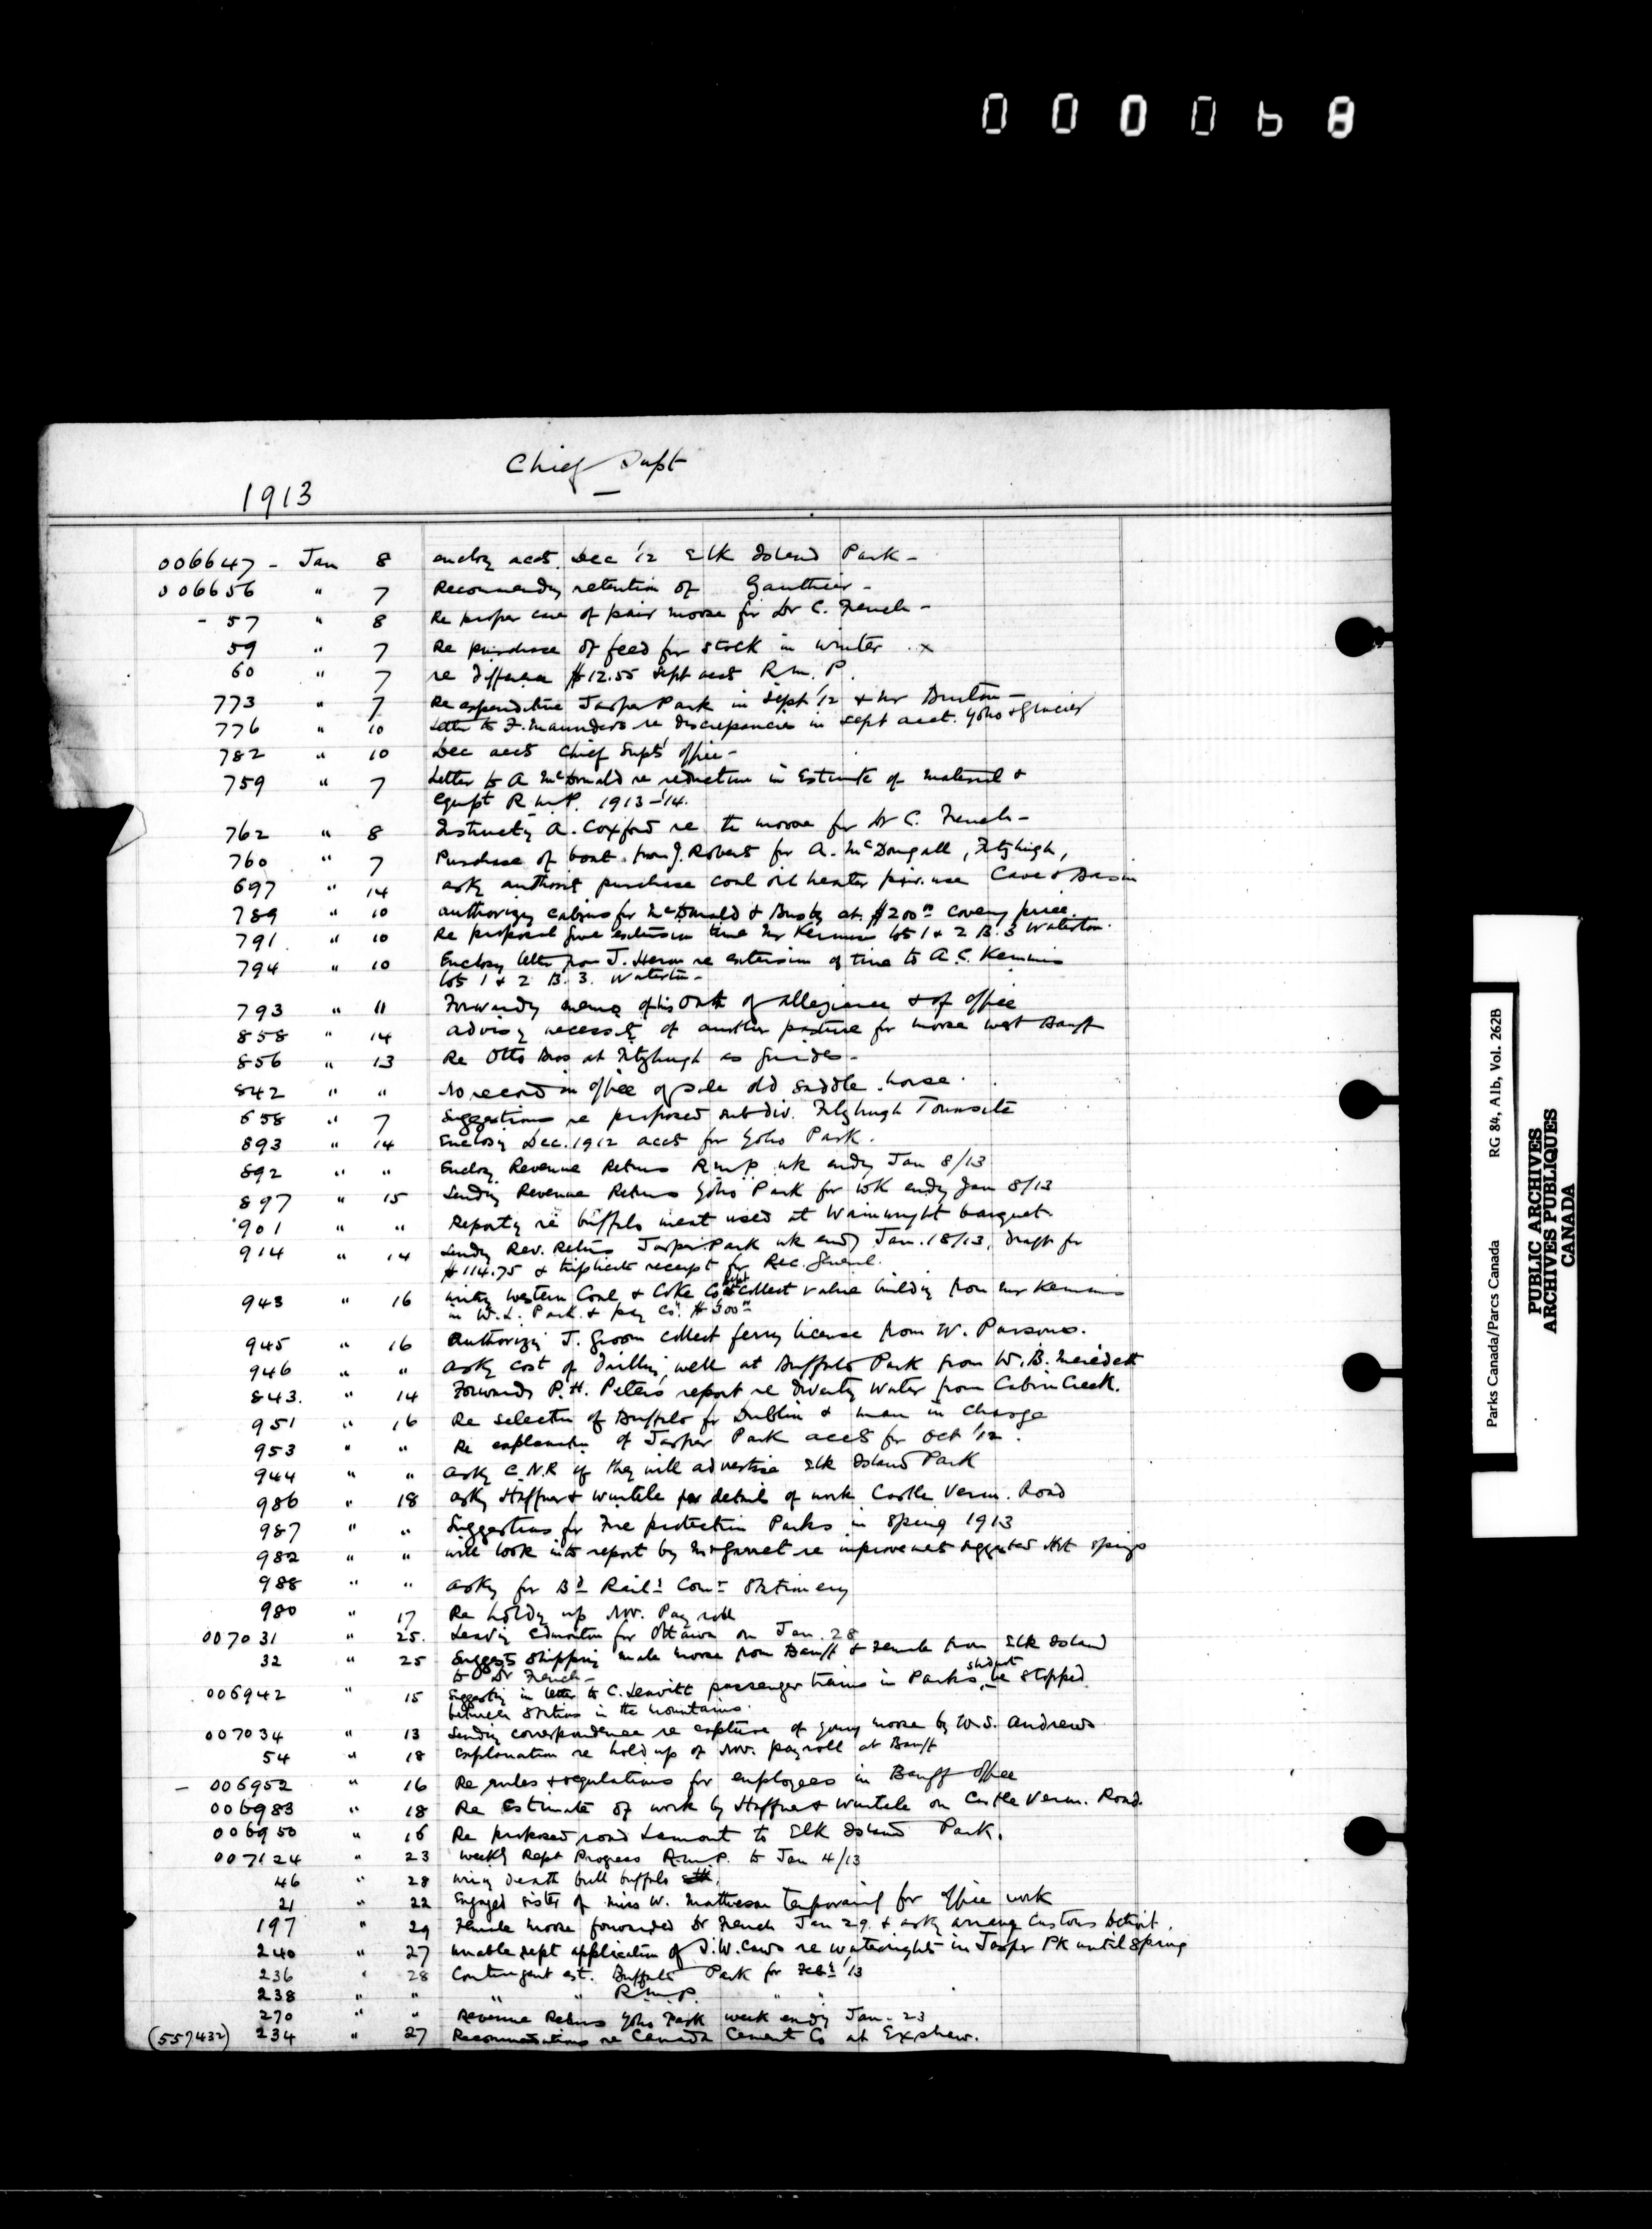 000068
Chief Supt
1913
0066647 - Jan 8 enclosg accts. Dec '12 Elk Island Park -
006656 " 7 Recommendg retention of Gauthier -
- 57 " 8 Re proper care of pair moose for Dr C. French -
59 " 7 Re purchase of feed for stock in winter . x
60 " 7 re difference $12.55 Sept accts R.M.P.
773 " 7 Re expenditure Jasper Park in Sept '12 & Mr Bruton -
776 " 10 Letter to F. Maunders re discrepancies in Sept acct. Yoho & Glacier
782 " 10 Dec accts Chief Supts' office -
759 " 7 Letter to A McDonald re reduction in Estimate of material &
Equipt R.M.P. 1913-'14.
762 " 8 Instructg A. Coxford re the moose for Dr C. French -
760 " 7 Purchase of boat from J. Robert for A. McDougall, Fitzhugh,
697 " 14 askg authority purchase coal oil heater for use Cave & Basin
789 " 10 authorizing cabins for McDonald & Busby at $200 00 coverg price.
791 " 10 Re proposal give extension time Mr Kemmis lots 1 & 2 B. 3 Waterton.
794 " 10 Enclosg letter from J. Heron re extension of time to A.C. Kemmis
lots 1 & 2 B. 3. Waterton -
793 " 11 Forwardg memo of his Oath of allegiance & of office
858 " 14 advisg necessity of another pasture for moose west Banff
856 " 13 Re Otto Bros at Fitzhugh as guides -
842 " " No record in office of sale old saddle horse.
658 " 7 Suggestions re proposed subdiv. Fitzhugh Townsite
893 " 14 Enclosg Dec. 1912 accts for Yoho Park.
892 " " Enclosg Revenue Returns R.M.P. wk endg Jan 8/13
897 " 15 Sendg Revenue Returns Yoho Park for wk endg Jan 8/13
901 " " Reportg re buffalo meat used at Wainwright banquet.
914 " 14 Sendg Rev. Retns Jasper Park wk endg Jan. 18/13, draft for
$114.75 & triplicate receipt for Rec. General.
943 " 16 Western Coal & Coke Co collect value building from Mr Kemmis
in W.L. Park & pay Co. $300 00
945 " 16 Authorizg J. Groom collect ferry license from W. Parsons.
946 " " askg cost of drilling well at Buffalo Park from W.B. Meredith
843. " 14 Forwards P.H. Peters' report re divertg water from Cabin Creek.
951 " 16 Re selection of Buffalo for Dublin & man in charge
953 " " Re explanation of Jasper Park accts for Oct '12.
944 " " askg C.N.R if they will advertise Elk Island Park
986 " 18 askg Haffner & Wurtele for details of work Castle Verm. Road
987 " " Suggestions for Fire protection Parks in Spring 1913
982 " " will look into report by Mr Garret re improvements suggested Hot Springs
988 " " askg for Bd Rail. Comr Stationery
980 " 17 Re holdg up Nov. Pay roll
007031 " 25. Leaving Edmonton for Ottawa on Jan. 28
32 " 25 Suggests shipping male moose from Banff & female from Elk Island
to Dr French -
006942 " 15 Suggestg in letter to C. Leavitt passenger trains in Parks shd not be stopped
between Stations in the Mountains.
007034 " 13 Sendg correspondence re capture of young moose by W.S. Andrews
54 " 18 Explanation re hold up of Nov. payroll at Banff
- 006952 " 16 Re rules & regulations for employees in Banff office
006983 " 18 Re Estimate of work by Haffner & Wurtele on Castle Verm. Road.
006950 " 16 Re proposed road Lamont to Elk Island Park.
007124 " 23 Weekly Rept Progress R.M.P. to Jan 4/13
46 " 28 wirg death bull buffalo
21 " 22 Engaged sister of Miss W. Matheson temporarily for office work
197 " 29 Female moose forwarded Dr French Jan 29. & askg arrange Customs Detroit.
240 " 27 unable rept application of J.W. Caws re waterrights in Jasper Pk until Spring
236 " 28 Contingent est. Buffalo Park for Feb. '13
238 " " " " R.M.P. " "
270 " " Revenue Retns Yoho Park week endg Jan. 23
(557432) 234 " 27 Recommendations re Canada Cement Co at Exshaw.
Parks Canada/Parcs Canada RG 84, A1b, Vol. 262B
PUBLIC ARCHIVES
ARCHIVES PUBLIQUES
CANADA